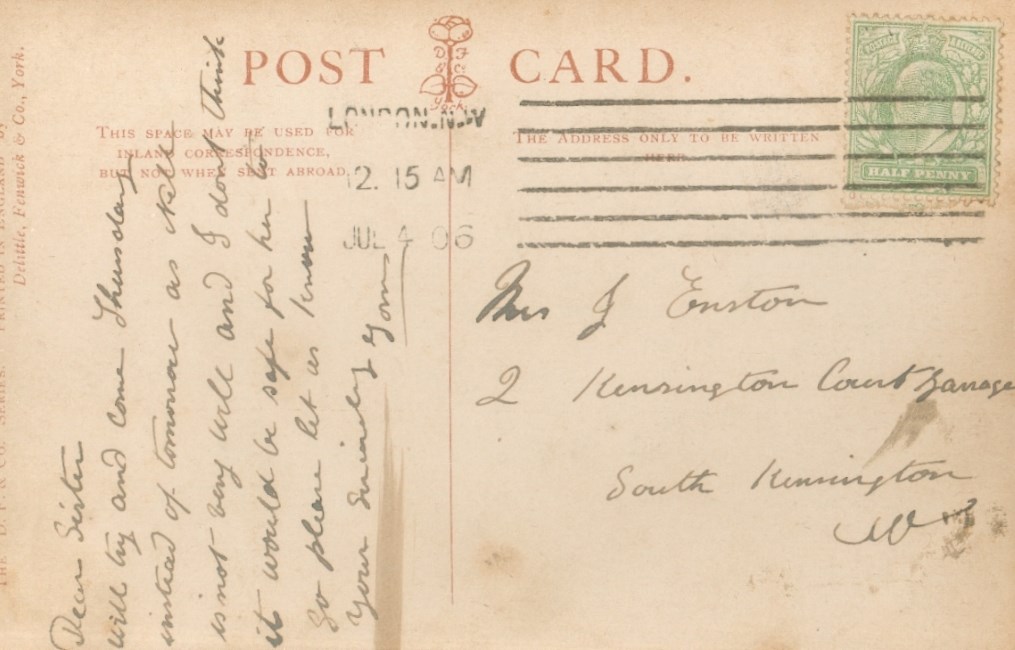 POST CARD.
D F
& Co
York.
THIS SPACE MAY BE USED FOR
INLAND CORRESPONDENCE,
BUT NOT WHEN SENT ABROAD.
THE ADDRESS ONLY TO BE WRITTEN
HERE
LONDON. N.W
12. 15 AM
JUL 4 06
POSTAGE & REVENUE
HALF PENNY
Dear Sister
will try and come Thursday
instead of tomorrow as
is not very well and I dont think
it would be safe for her to
so please let us know
Your
Mrs J Enston
2 Kensington Court Garrage
South Kensington
W
THE D. F. & CO. SERIES. PRINTED IN ENGLAND BY
Delittle, Fenwick & Co., York.